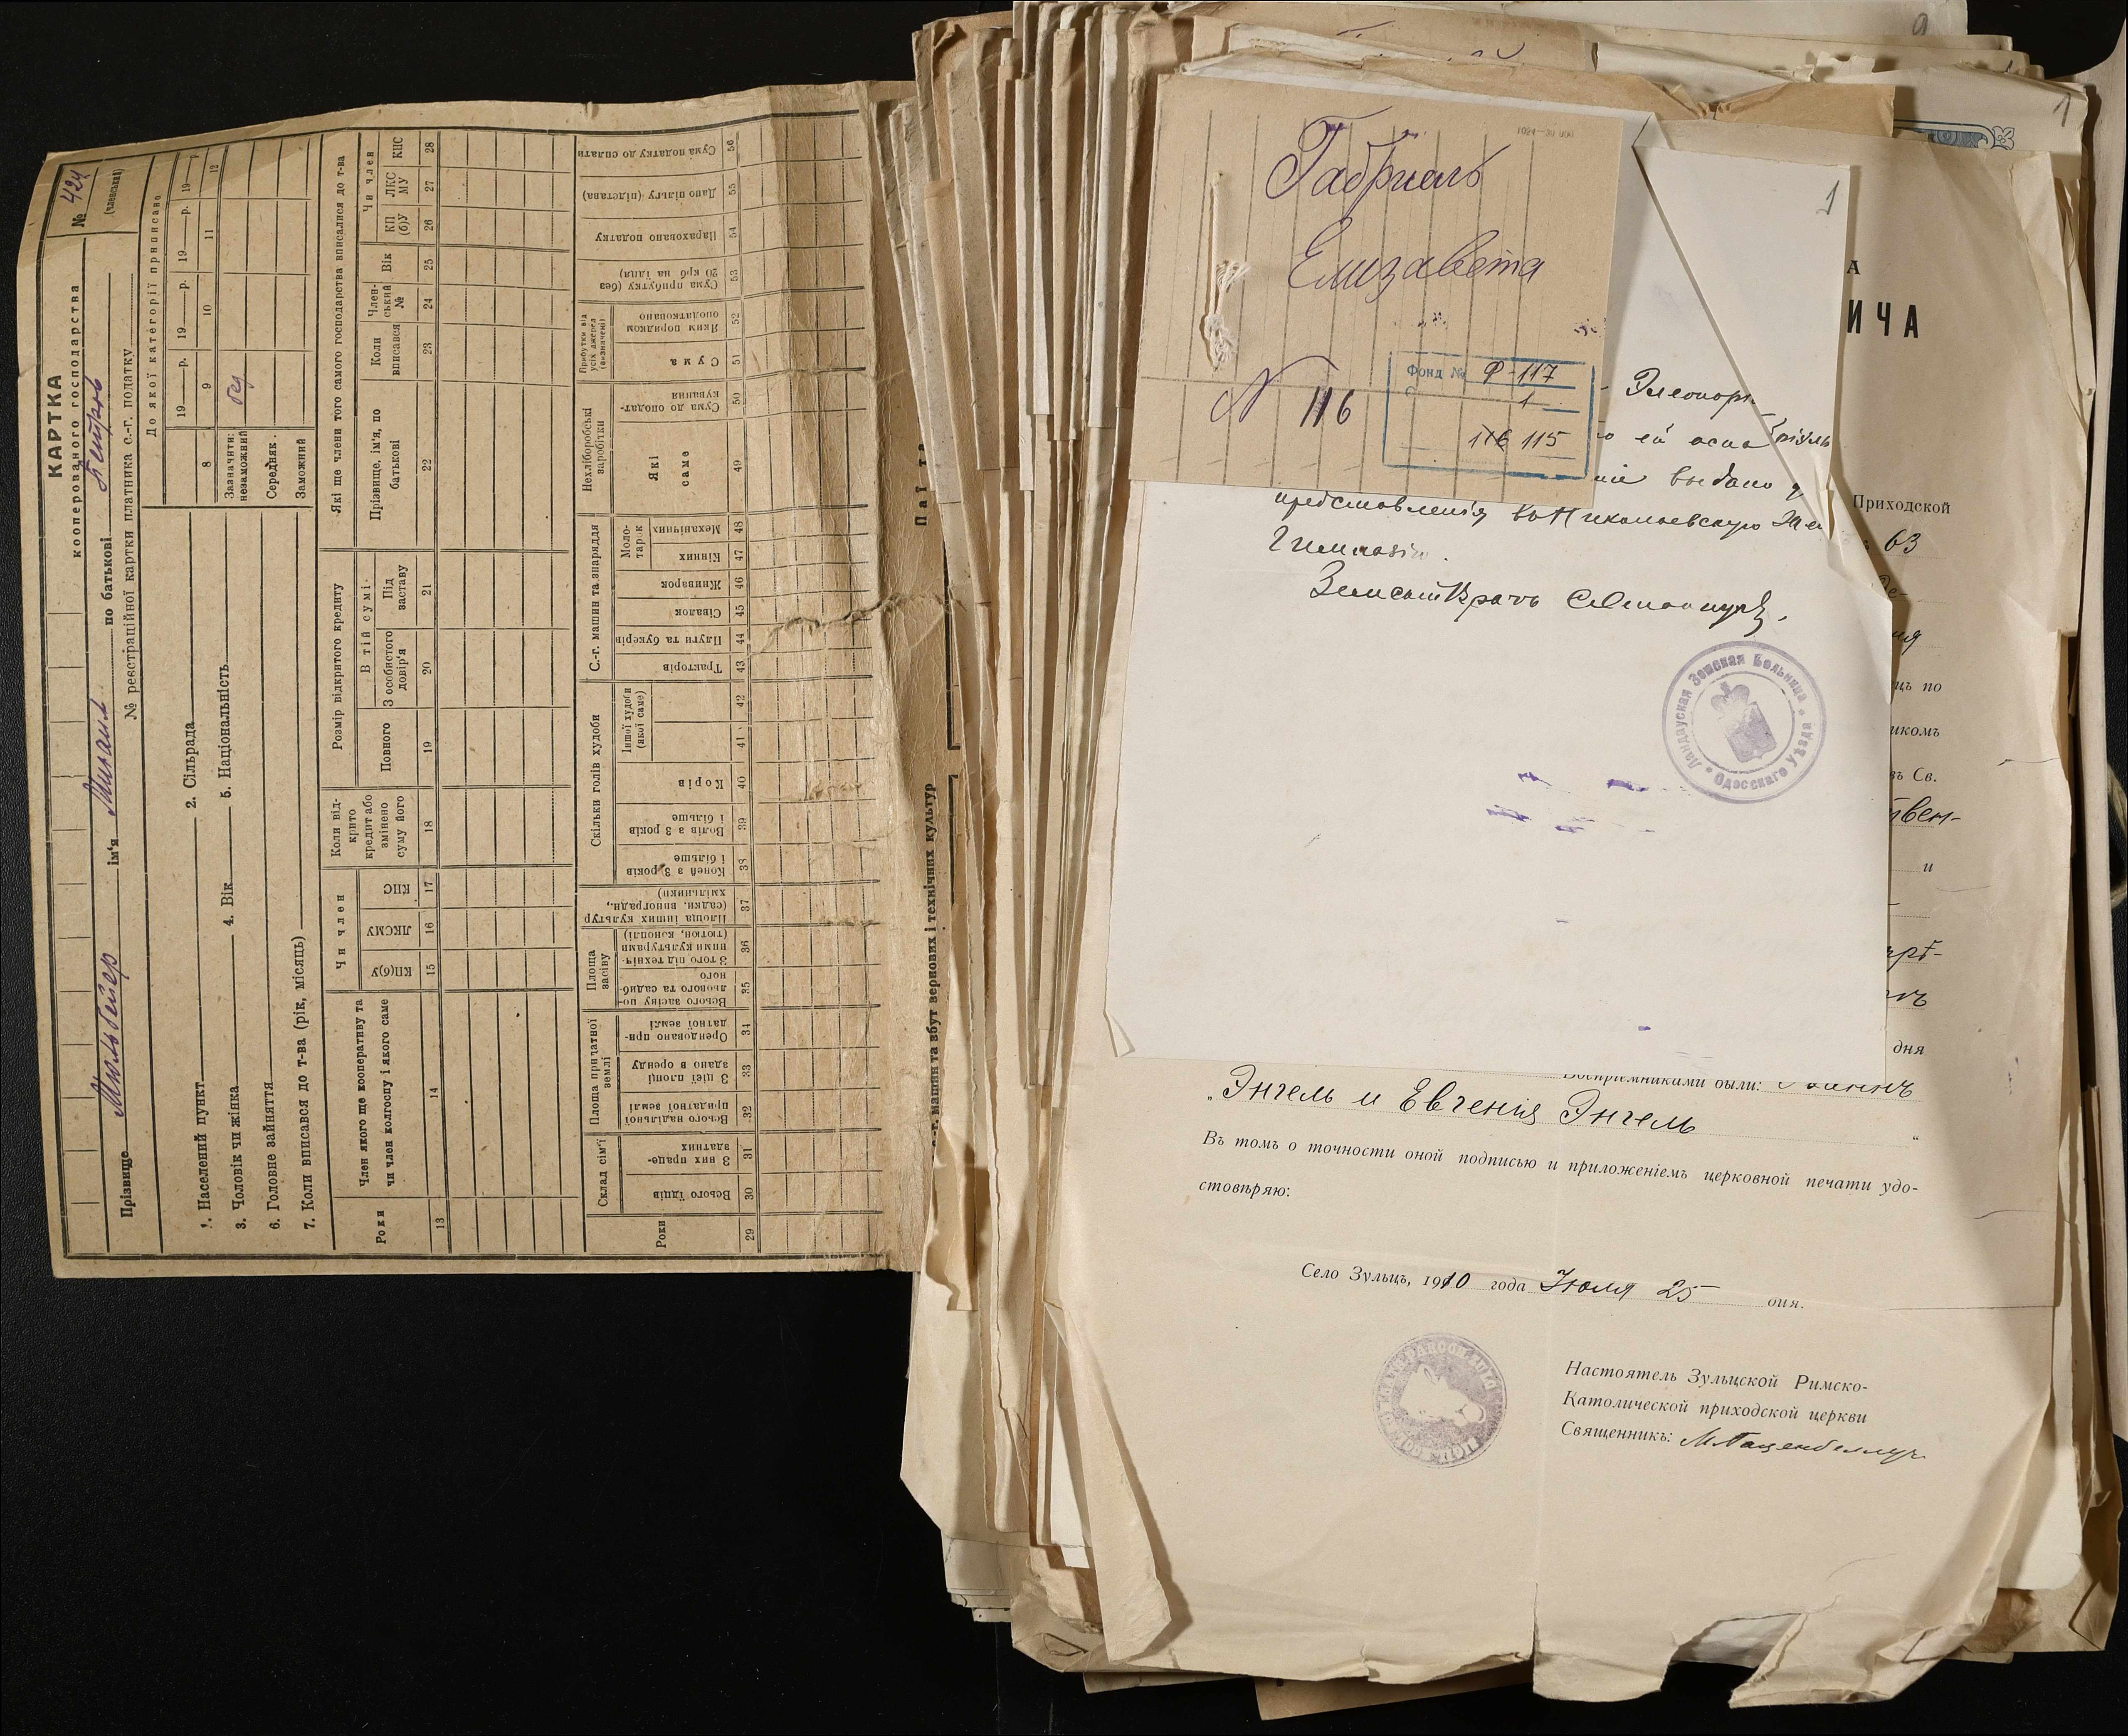 КАРТКА
кооперованого господарства
№ 424
(членський)
Прізвище Мюльбейер ім'я Михаил по батькові Петров
№ реєстраційної картки платника с.-г. податку
До якої категорії приписано
19 р. 19 р. 19 р. 19
8 9 10 11 12
Зазначити:
незаможний бед
Середняк
Заможний
1. Населений пункт 2. Сільрада
3. Чоловік чи жінка 4. Вік 5. Національність
6. Головне зайняття
7. Коли вписався до т-ва (рік, місяць)
Роки
Член якого ще кооперативу та
чи член колгоспу і якого саме
Чи член
КП(б)У ЛКСМУ КНС
Коли від-
крито
кредит або
змінено
суму його
Розмір відкритого кредиту
Повного
В тій сумі
З особистого
довір'я
Під
заставу
Які ще члени того самого господарства вписалися до т-ва
Прізвище, ім'я, по
батькові
Коли
вписався
Член-
ський
№
Вік
Чи член
КП
(б)У
ЛКС
МУ
КНС
13 14 15 16 17 18 19 20 21 22 23 24 25 26 27 28
Роки
Склад сім'ї
Всього їдців
З них праце-
здатних
Площа придатної
землі
Всього надільної
придатної землі
З цієї площі
здано в оренду
Орендовано при-
датної землі
Площа
засіву
Всього засіву по-
льового та садиб-
ного
З того під техніч-
ними культурами
(тютюн, коноплі)
Площа інших культур
(садки, виногради,
хмільники)
Скільки голів худоби
Коней з 3 років
і більше
Волів з 3 років
і більше
Корів
Іншої худоби
(якої саме)
С.-г. машин та знаряддя
Тракторів
Плуги та букерів
Сівалок
Жниварок
Моло-
тарок
Кінних
Механічних
Нехліборобські
заробітки
Які
саме
Сума до оподат-
кування
Прибутки від
усіх джерел
(зазначені)
Сума
Яким порядком
оподатковано
Сума прибутку (без
20 крб на їдця)
Нараховано податку
Дано пільгу (підстава)
Сума податку до сплати
29 30 31 32 33 34 35 36 37 38 39 40 41 42 43 44 45 46 47 48 49 50 51 52 53 54 55 56
Паї та
с.-г. машин та збут зернових і технічних культур
Габриель
Елизавета
N 116
Фонд № Ф-117
1
116 115
1
9
1
А
ИЧА
Элеонор
ей оспа
выдано
представленія въ Николаевскую
Гимназію.
Земскій Врачъ
Ландауская Земская Больница
Одесскаго Уѣзда
Приходской
63
ия
цъ по
иком
въ Св.
твен-
и
дня
Воспріемниками были:
„Энгель и Евгенія Энгель“
Въ томъ о точности оной подписью и приложеніемъ церковной печати удо-
стовѣряю:
Село Зульцъ, 1910 года Іюля 25 дня.
Настоятель Зульцской Римско-
Католической приходской церкви
Священникъ: